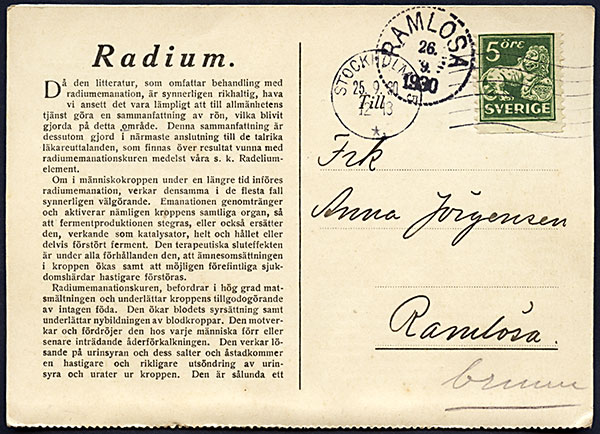 Radium.
Då den litteratur, som omfattar behandling med
radiumemanation, är synnerligen rikhaltig, hava
vi ansett det vara lämpligt att till allmänhetens
tjänst göra en sammanfattning av rön, vilka blivit
gjorda på detta område. Denna sammanfattning är
dessutom gjord i närmaste anslutning till de talrika
läkareuttalanden, som finnas över resultat vunna med
radiumemanationskuren medelst våra s. k. Radelium-
element.
Om i människokroppen under en längre tid införes
radiumemanation, verkar densamma i de flesta fall
synnerligen välgörande. Emanationen genomtränger
och aktiverar nämligen kroppens samtliga organ, så
att fermentproduktionen stegras, eller också ersätter
den, verkande som katalysator, helt och hållet eller
delvis förstört ferment. Den terapeutiska sluteffekten
är under alla förhållanden den, att ämnesomsättningen
i kroppen ökas samt att möjligen förefintliga sjuk-
domshärdar hastigare förstöras.
Radiumemanationskuren, befordrar i hög grad mat-
smältningen och underlättar kroppens tillgodogörande
av intagen föda. Den ökar blodets syrsättning samt
underlättar nybildningen av blodkroppar. Den motver-
kar och fördröjer den hos varje människa förr eller
senare inträdande åderförkalkningen. Den verkar lö-
sande på urinsyran och dess salter och åstadkommer
en hastigare och rikligare utsöndring av urin-
syra och urater ur kroppen. Den är sålunda ett
RAMLÖSA
26.
9.
1930
STOCKHOLM
25. 9. 30
12-13
Till
5 ÖRE
SVERIGE
Frk
Anna Jörgensen
Ramlösa.
brunn